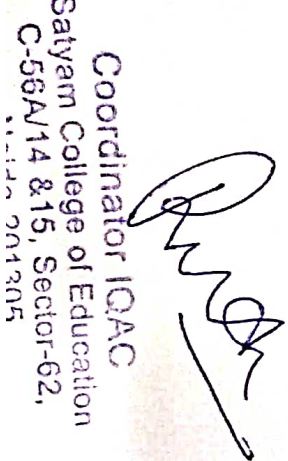 Coordinator IQAC
Satyam College of Education
C-56A/14 &15, Sector-62,
201305